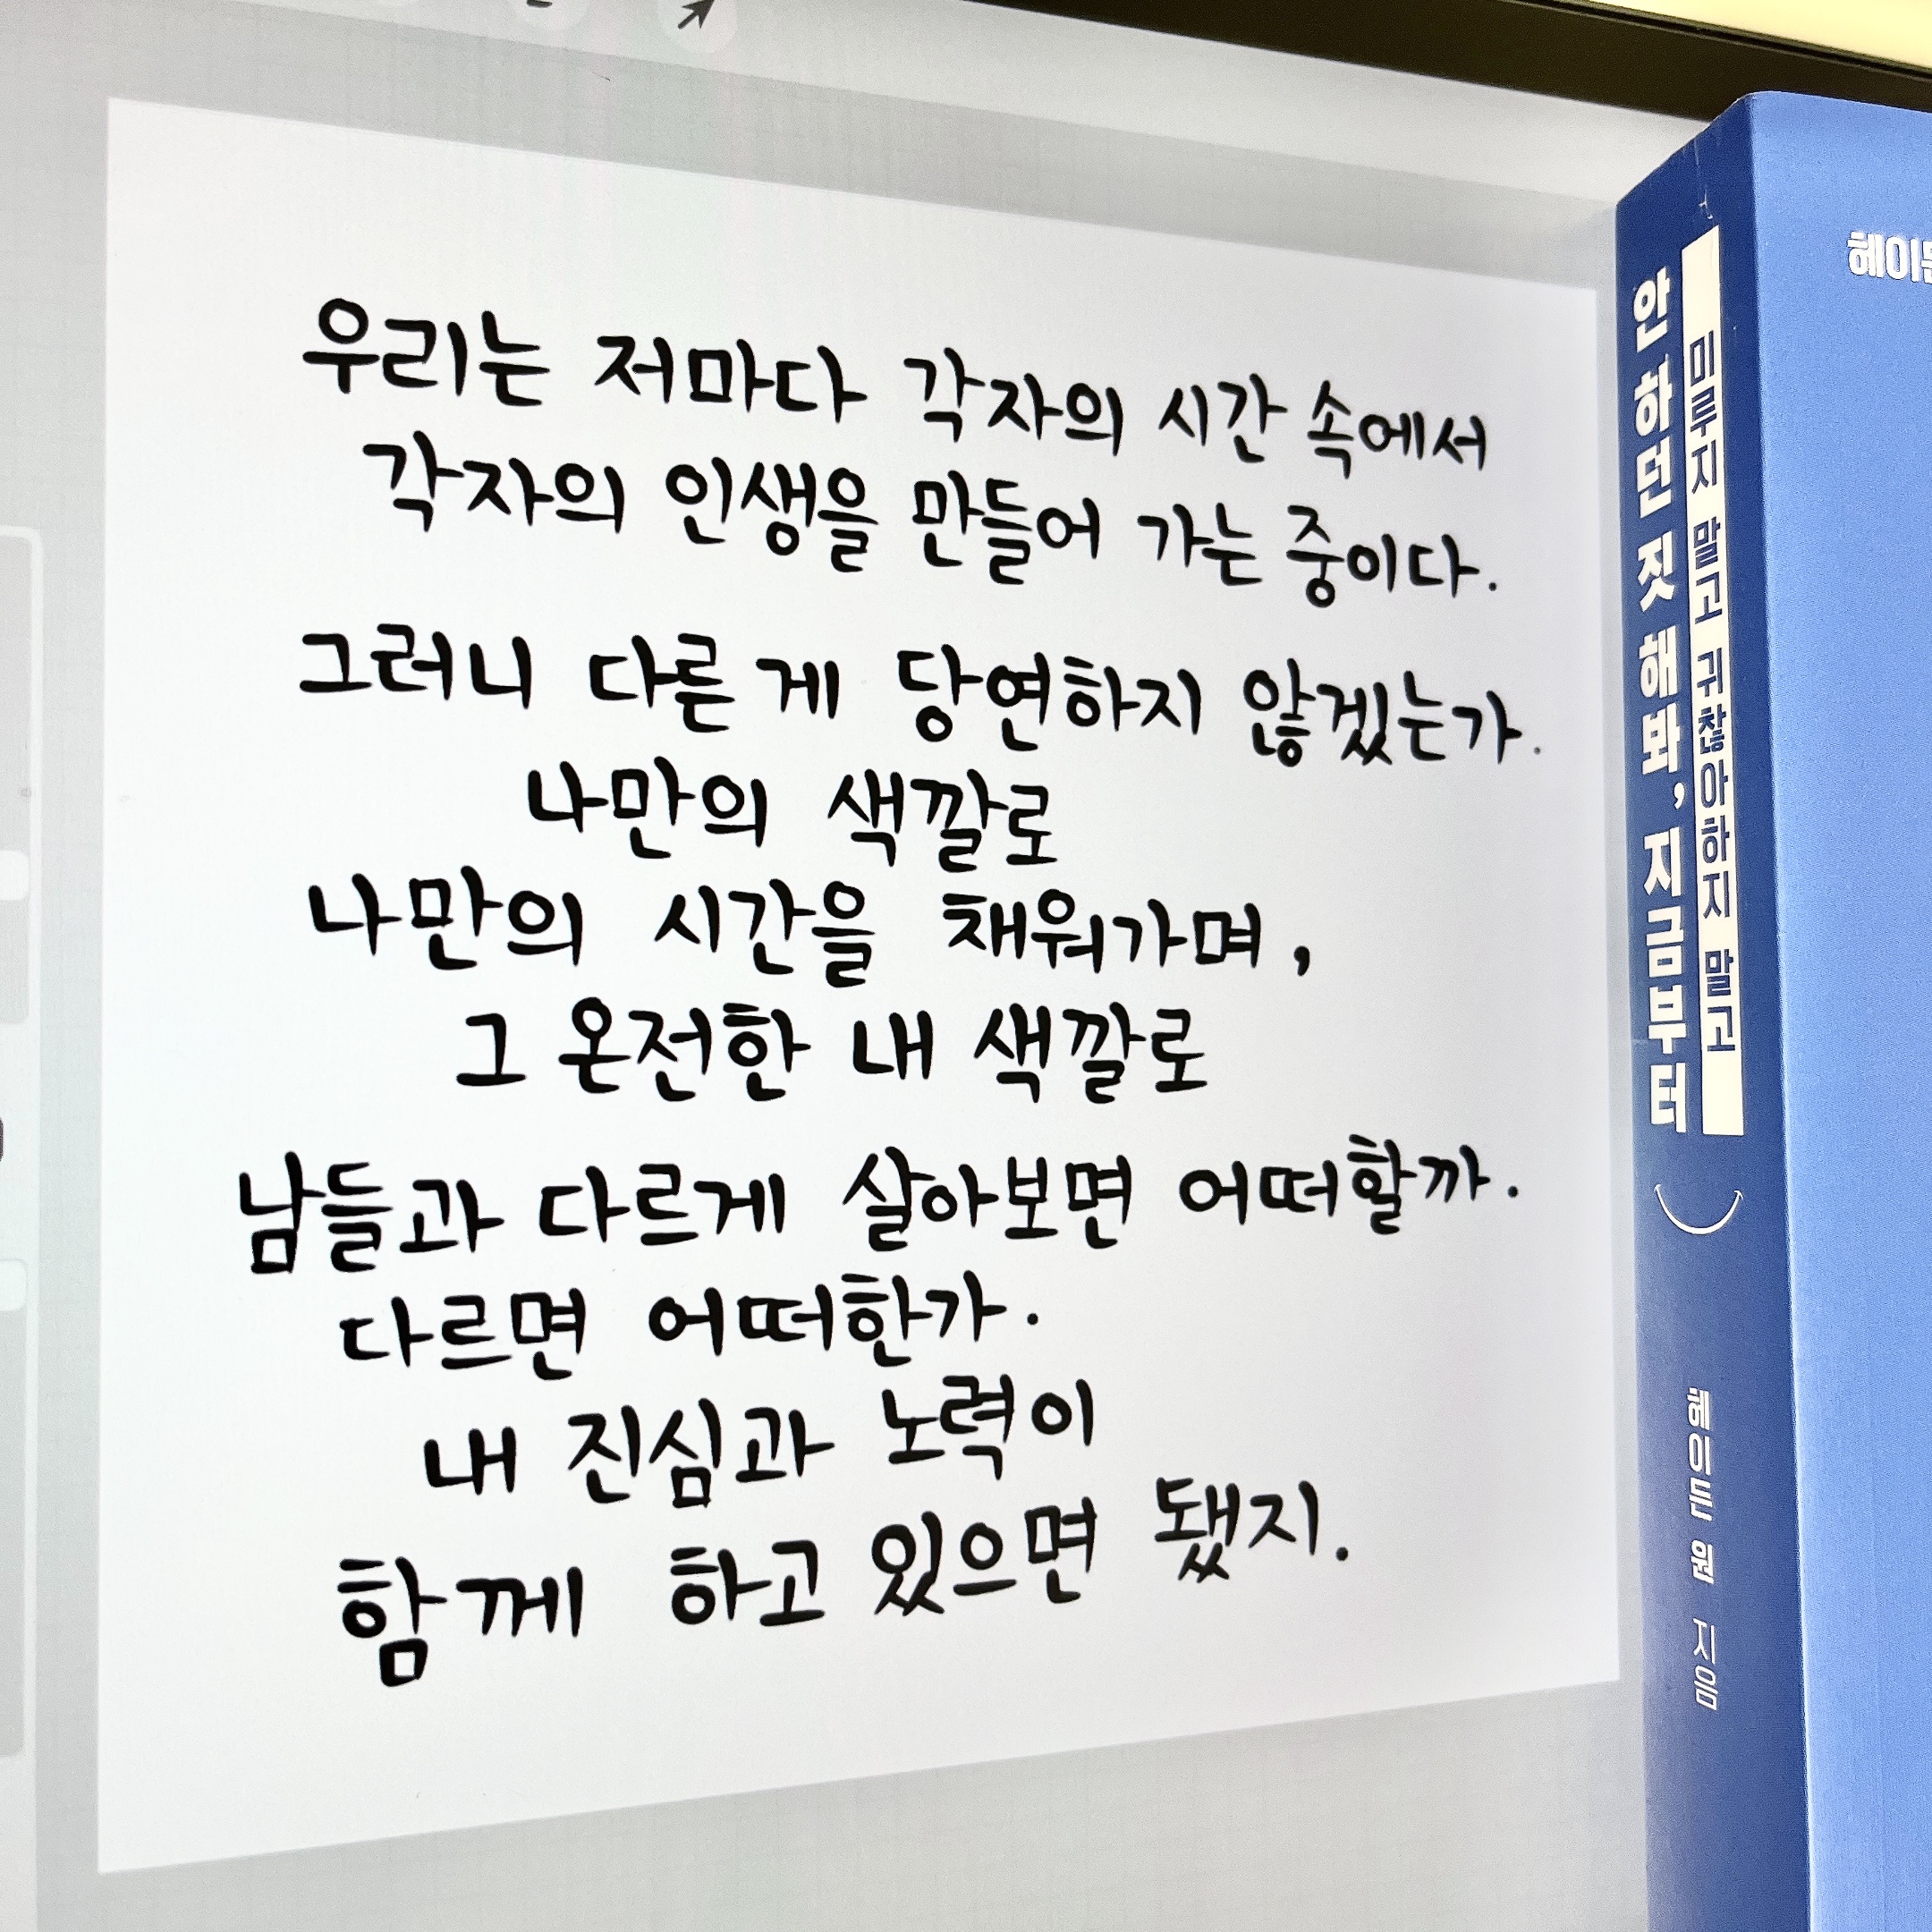 우리는 저마다 각자의 시간 속에서
각자의 인생을 만들어 가는 중이다.
그러니 다른 게 당연하지 않겠는가.
나만의 색깔로
나만의 시간을 채워가며,
그 온전한 내 색깔로
남들과 다르게 살아보면 어떠할까.
다르면 어떠한가.
내 진심과 노력이
함께 하고 있으면 됐지.
미루지 말고 귀찮아하지 말고
안 하던 짓 해봐, 지금부터
헤이든 원 지음
헤이든